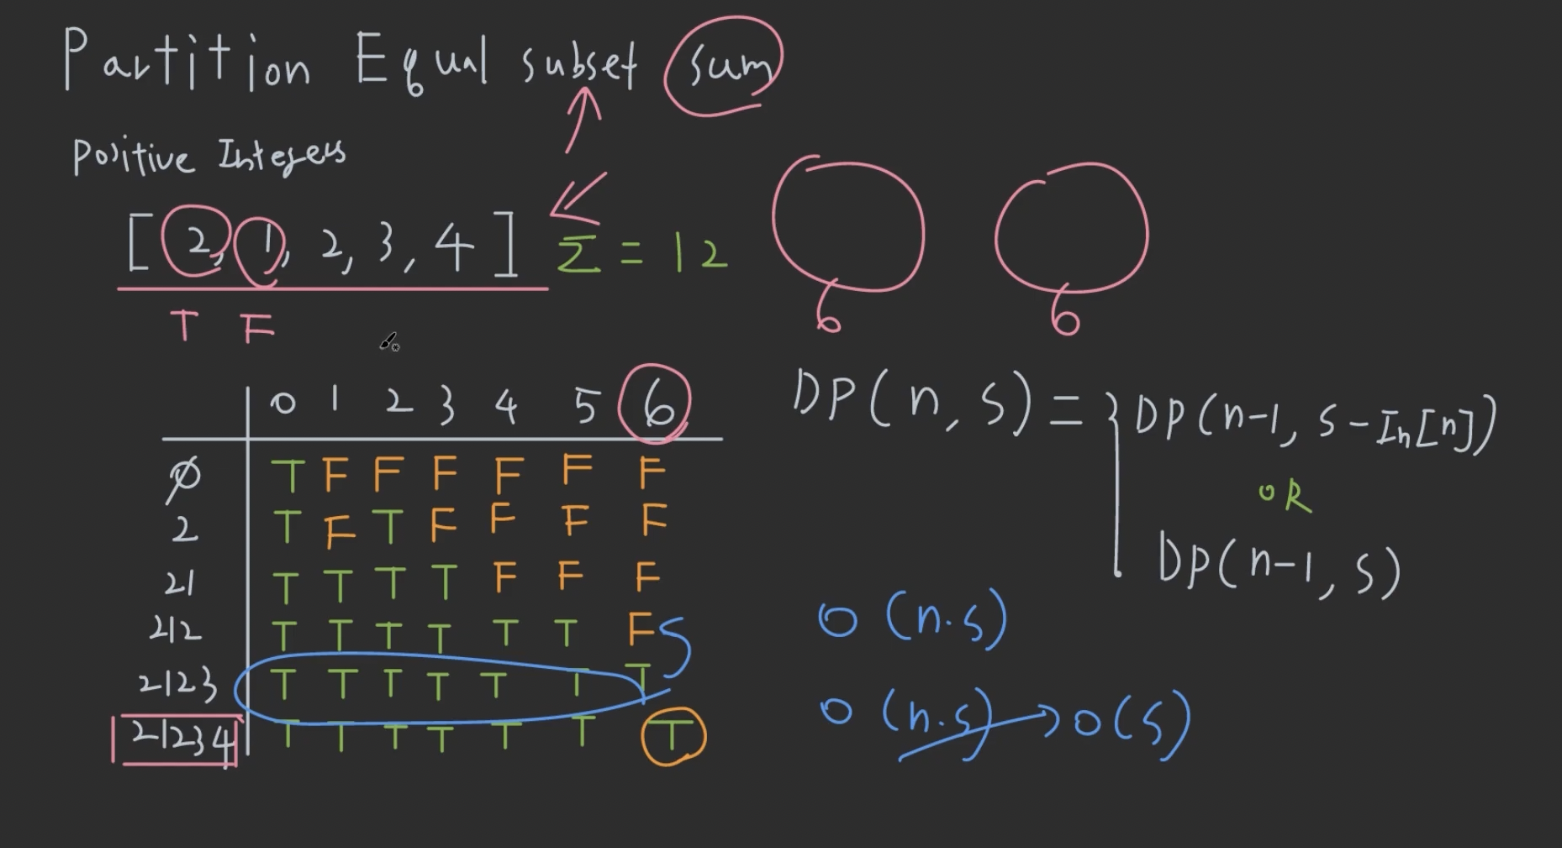 Partition Equal subset sum
Positive Integers
[2, 1, 2, 3, 4] Σ = 12
6 6
T F
0 1 2 3 4 5 6
∅ T F F F F F F
2 T F T F F F F
21 T T T T F F F
212 T T T T T T F S
2123 T T T T T T T
21234 T T T T T T T
DP(n, s) = { DP(n-1, s-In[n])
OR
DP(n-1, s)
O(n·s)
O(n·s) → O(s)